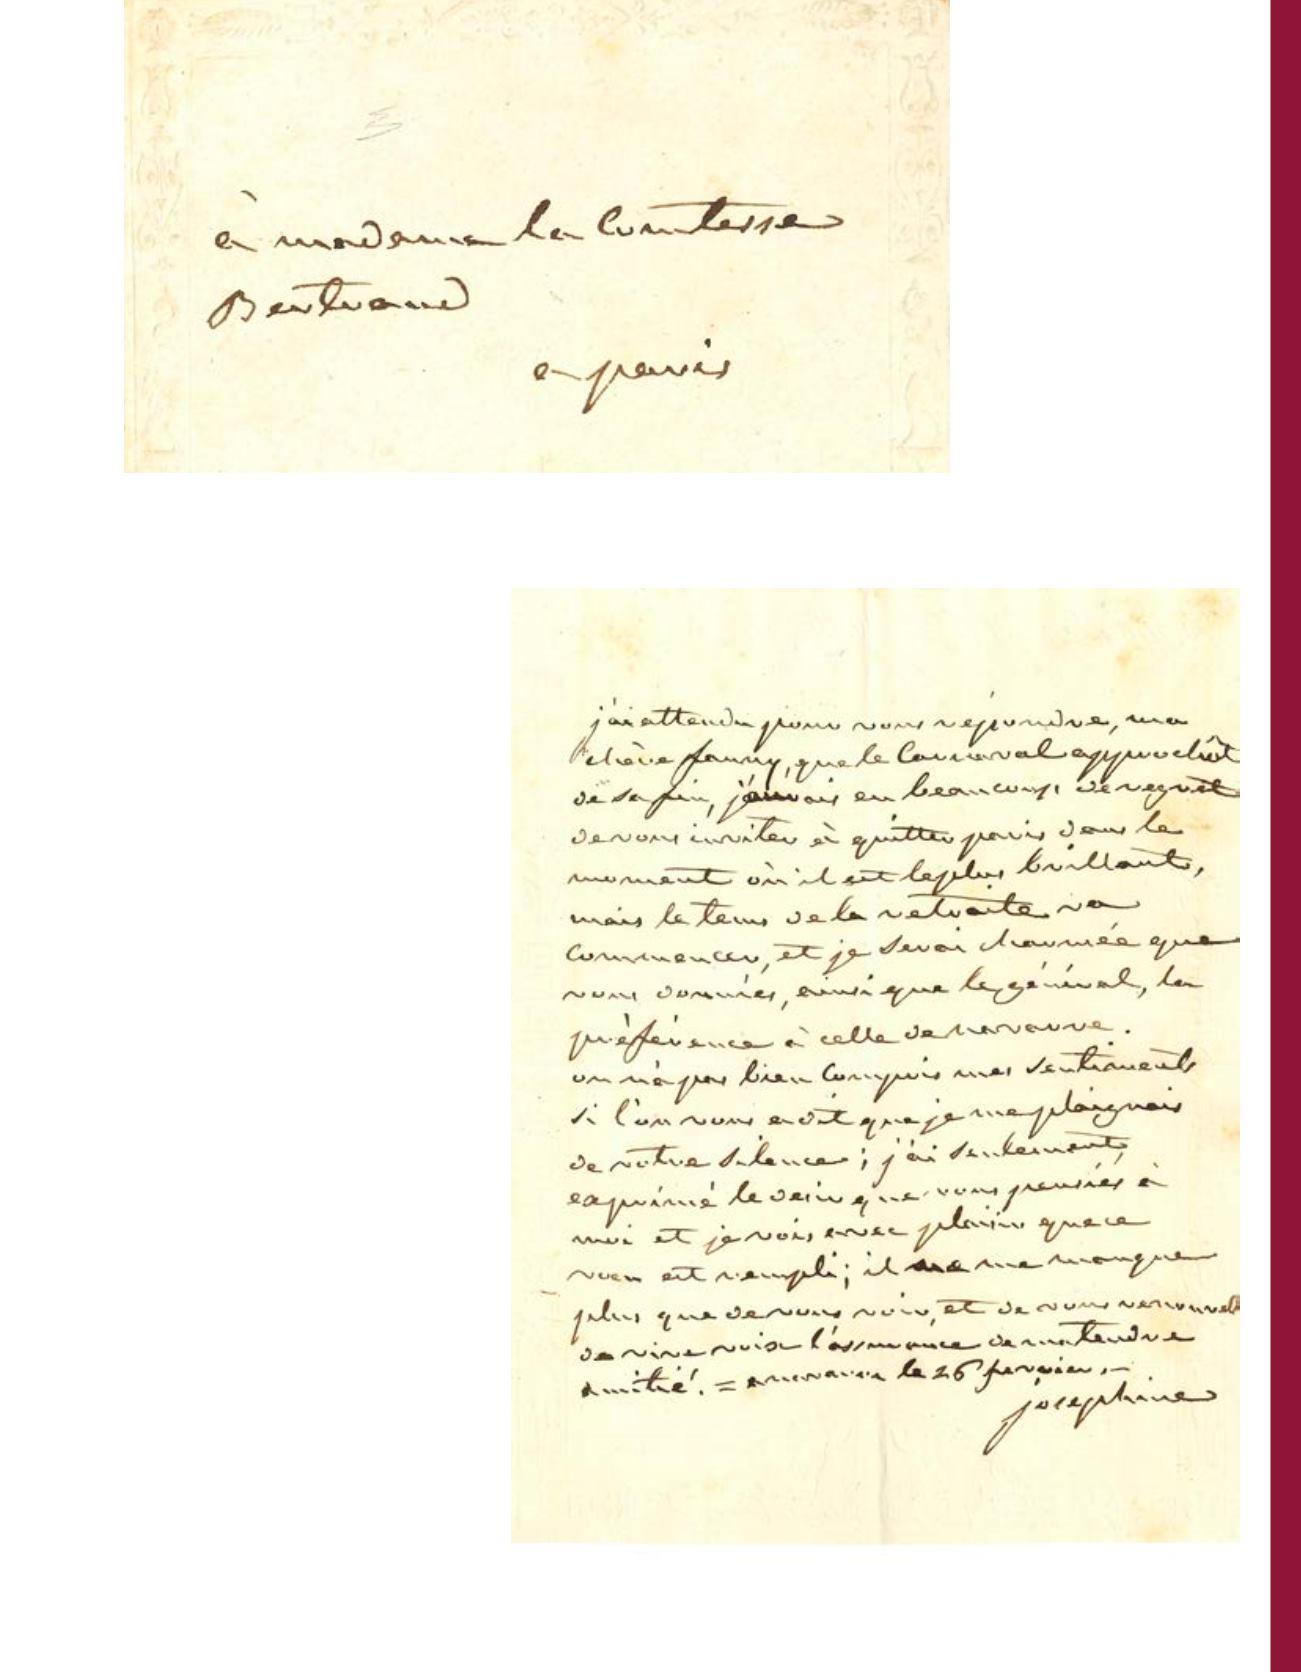 à madame la Comtesse
Bertrand
a paris
j'ai attendu pour vous repondre, ma
chère fanny, que le Carnaval approchât
de sa fin, j'aurais eu beaucoup de regret
de vous inviter à quitter paris dans le
moment où il est le plus brillant,
mais le tems de la retraite va
commencer, et je serai charmée que
vous donniés, ainsi que le général, la
préférence à celle de navarre.
on n'a pas bien Compris mes sentiments
si l'on vous a dit que je me plaignais
de votre silence; j'ai seulement
exprimé le desir que vous pensiés à
moi et je vois avec plaisir que ce
voeu est rempli; il ne me manque
plus que de vous voir, et de vous renouvel
de vive voix l'assurance de ma tendre
amitié. = a navarre le 26 fevrier. –
joséphine